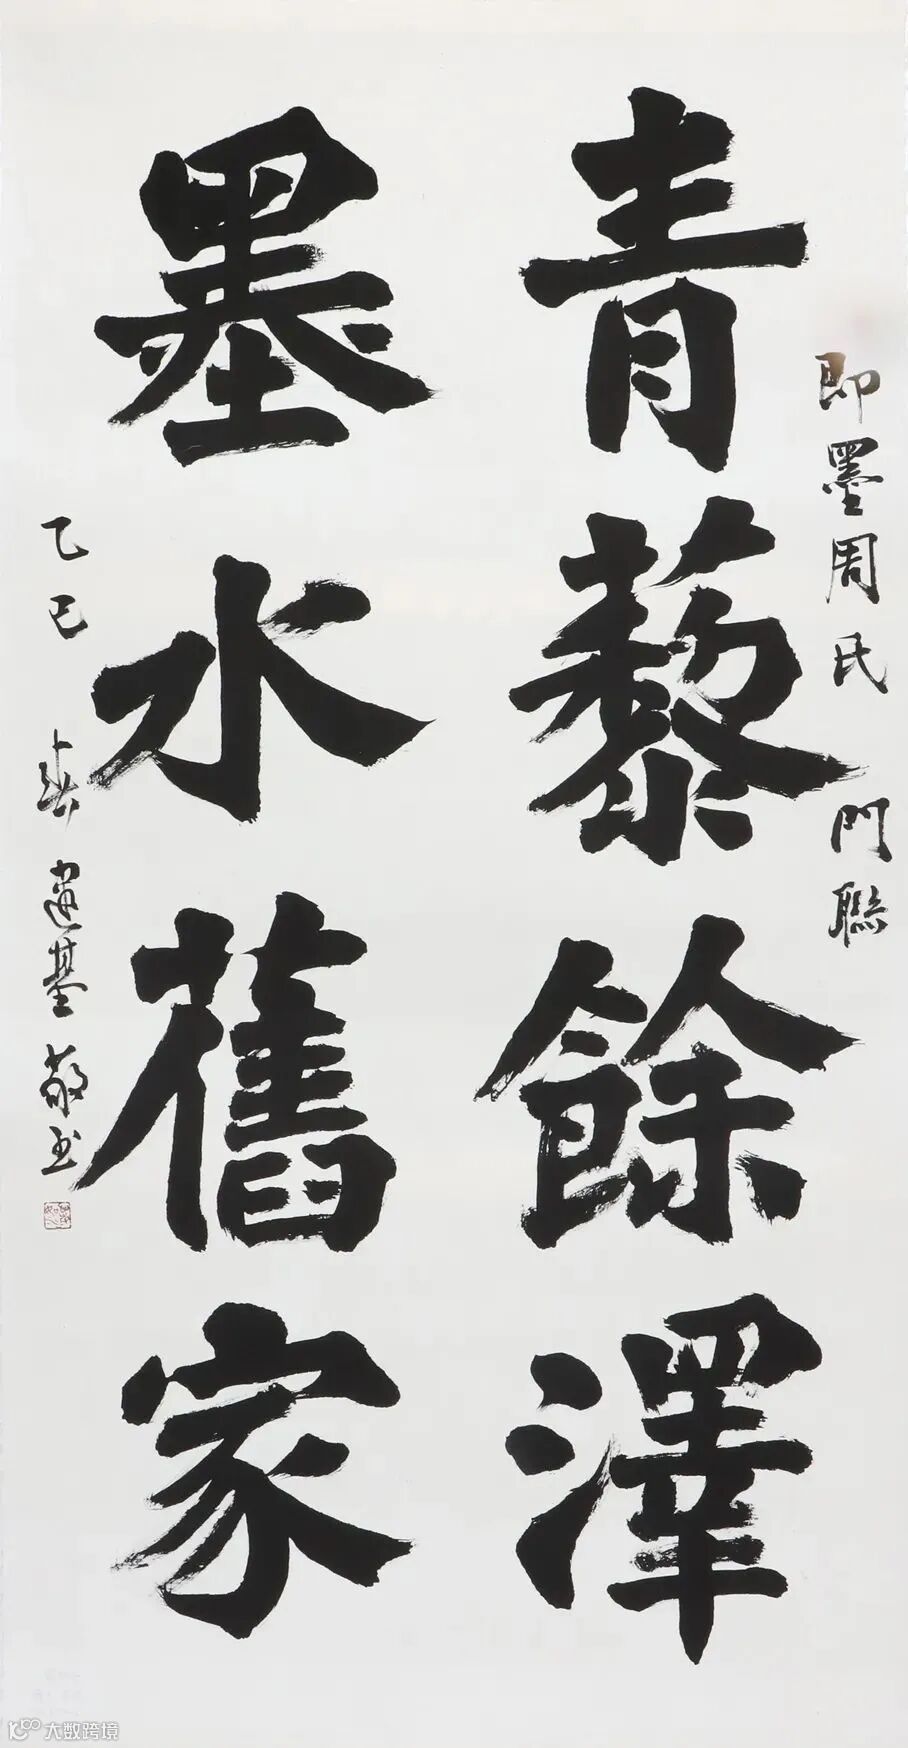 即墨周氏門聯
青藜餘澤
墨水舊家
乙巳春建基敬书
大数跨境